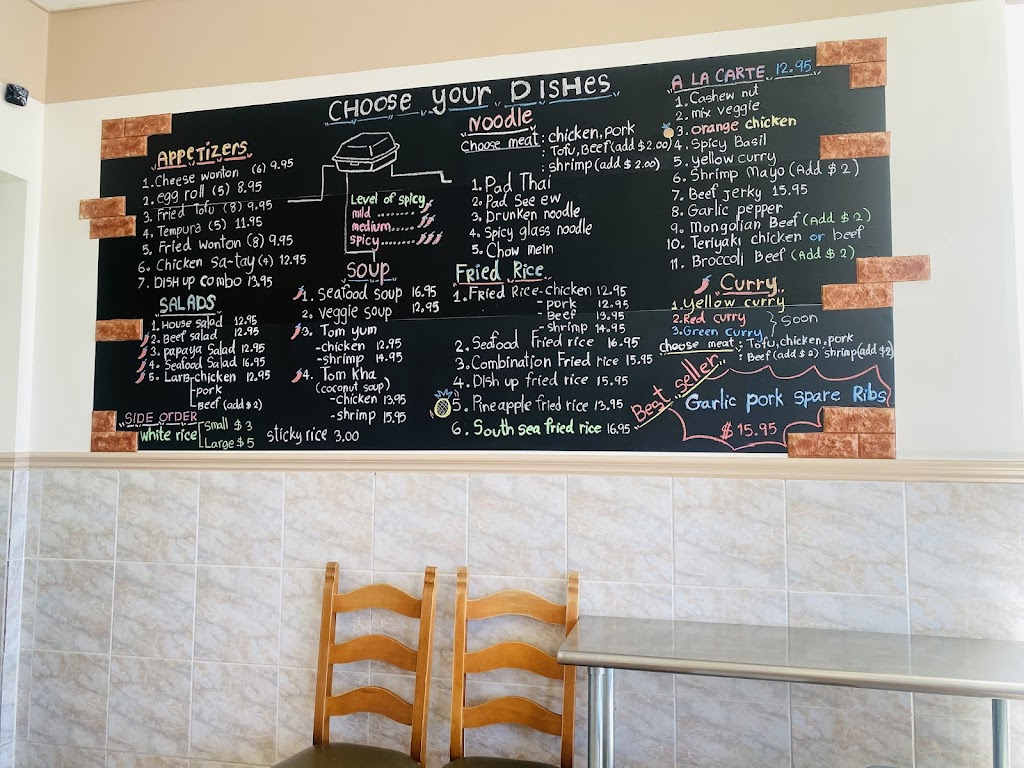 CHOOSE YOUR DISHES
APPETIZERS
1. Cheese wonton (6) 9.95
2. egg roll (5) 8.95
3. Fried Tofu (8) 9.95
4. Tempura (5) 11.95
5. Fried wonton (8) 9.95
6. Chicken Sa-tay (4) 12.95
7. DISH UP COMBO 13.95
SALADS
1. House salad 12.95
2. Beef salad 12.95
3. papaya Salad 12.95
4. Seafood Salad 16.95
5. Larb-chicken 12.95
-pork
-Beef (add $2)
SIDE ORDER
white rice Small $3
Large $5
sticky rice 3.00
Level of spicy
mild ........
medium.......
spicy........
SOUP
1. Seafood soup 16.95
2. Veggie soup 12.95
3. Tom yum
-chicken 12.95
-shrimp 14.95
4. Tom Kha
(coconut soup)
-chicken 13.95
-shrimp 15.95
Noodle
Choose meat : chicken, pork
: Tofu, Beef (add $2.00)
: shrimp (add $2.00)
1. Pad Thai
2. Pad See ew
3. Drunken noodle
4. Spicy glass noodle
5. Chow mein
Fried Rice
1. Fried Rice-chicken 12.95
-pork 12.95
-Beef 13.95
-shrimp 14.95
2. Seafood Fried rice 16.95
3. Combination Fried rice 15.95
4. Dish up fried rice 15.95
5. Pineapple fried rice 13.95
6. South sea fried rice 16.95
A LA CARTE 12.95
1. Cashew nut
2. mix veggie
3. orange chicken
4. Spicy Basil
5. yellow curry
6. Shrimp Mayo (Add $2)
7. Beef jerky 15.95
8. Garlic pepper
9. Mongolian Beef (Add $2)
10. Teriyaki chicken or beef
11. Broccoli Beef (Add $2)
Curry
1. Yellow curry
2. Red curry
3. Green curry
Soon
choose meat : Tofu, chicken, pork
: Beef (add $2) shrimp (add $2)
Best seller
Garlic pork spare Ribs
$15.95